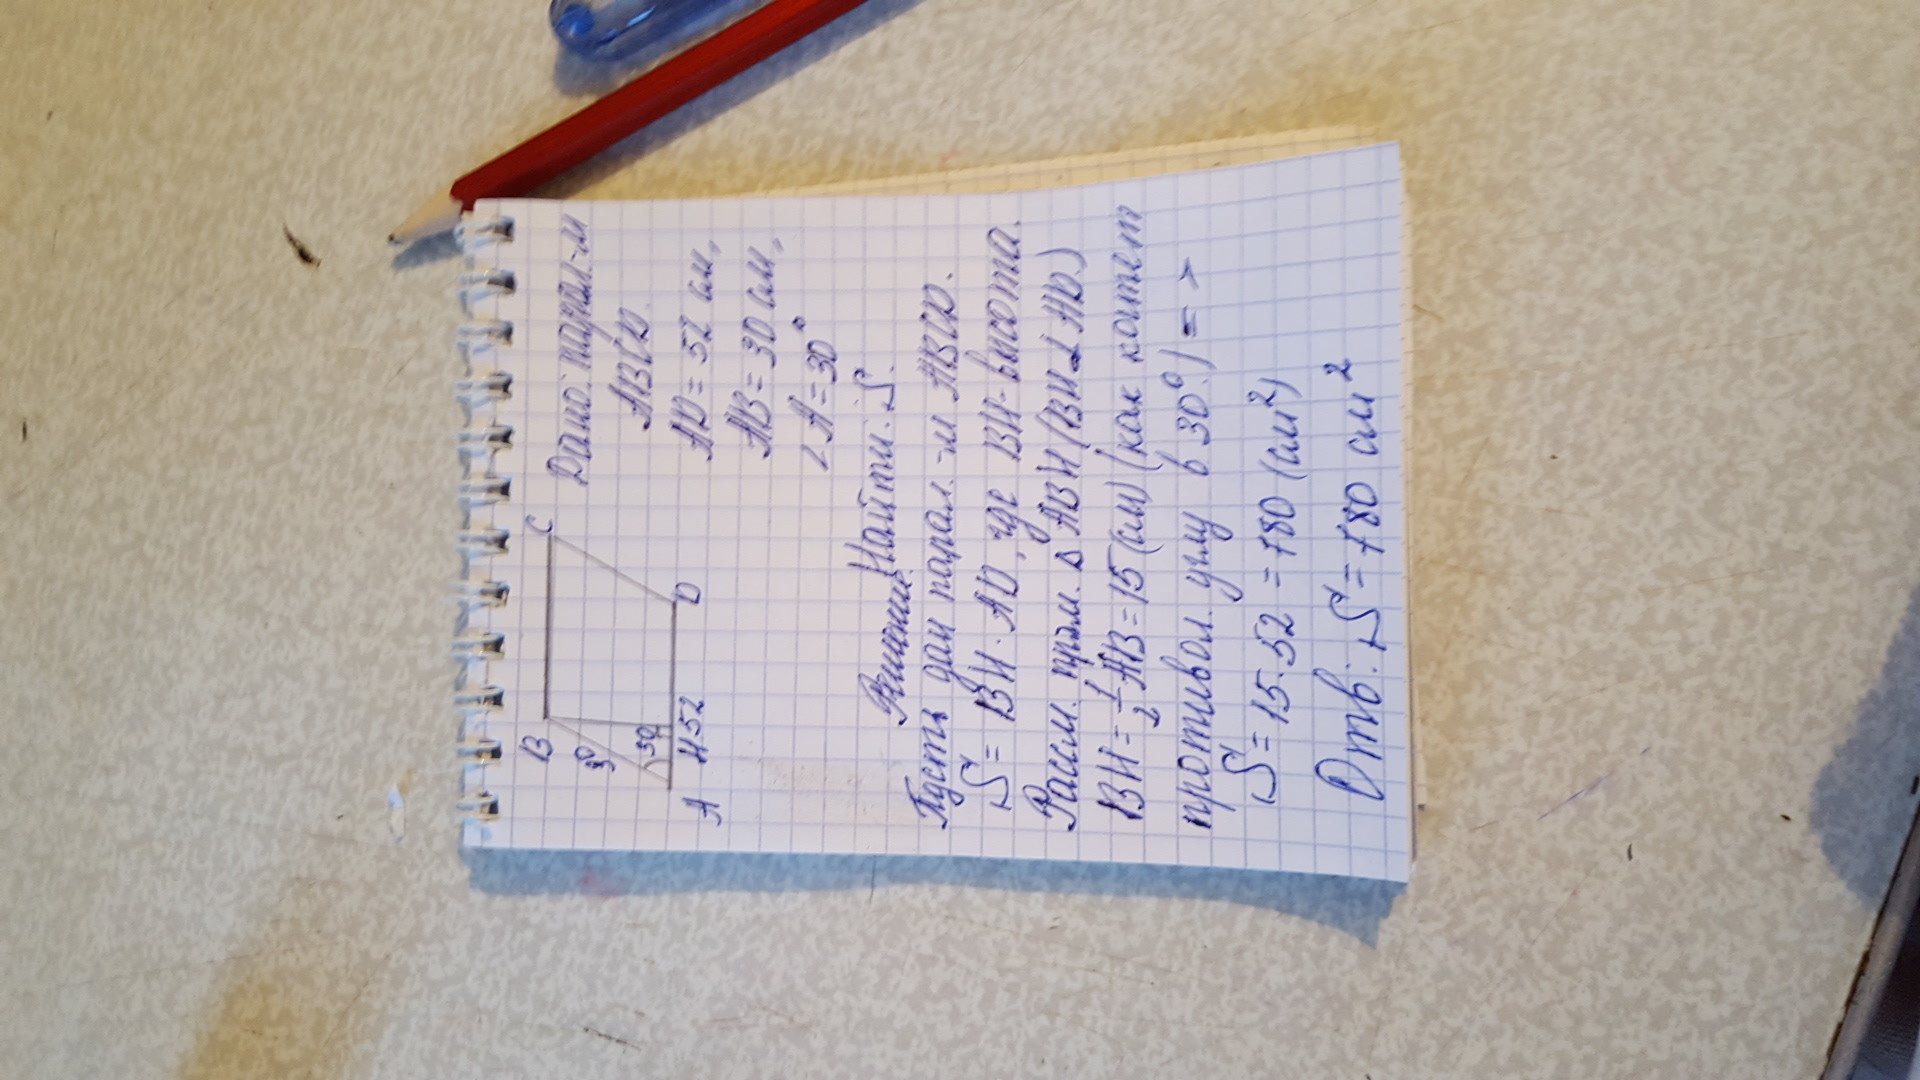 B
C
30
30
A
H 52
D
Дано: парал-м
ABCD.
AD = 52 см,
AB = 30 см,
∠A = 30°
Найти: S.
Решение
Пусть дан парал.-м ABCD.
S = BH · AD, где BH - высота.
Рассм. прям. Δ ABH (BH ⊥ AD.)
BH = 1/2 AB = 15 (см) (как катет
противол. углу в 30°.) = >
S = 15 · 52 = 780 (см²)
Отв: S = 780 см²